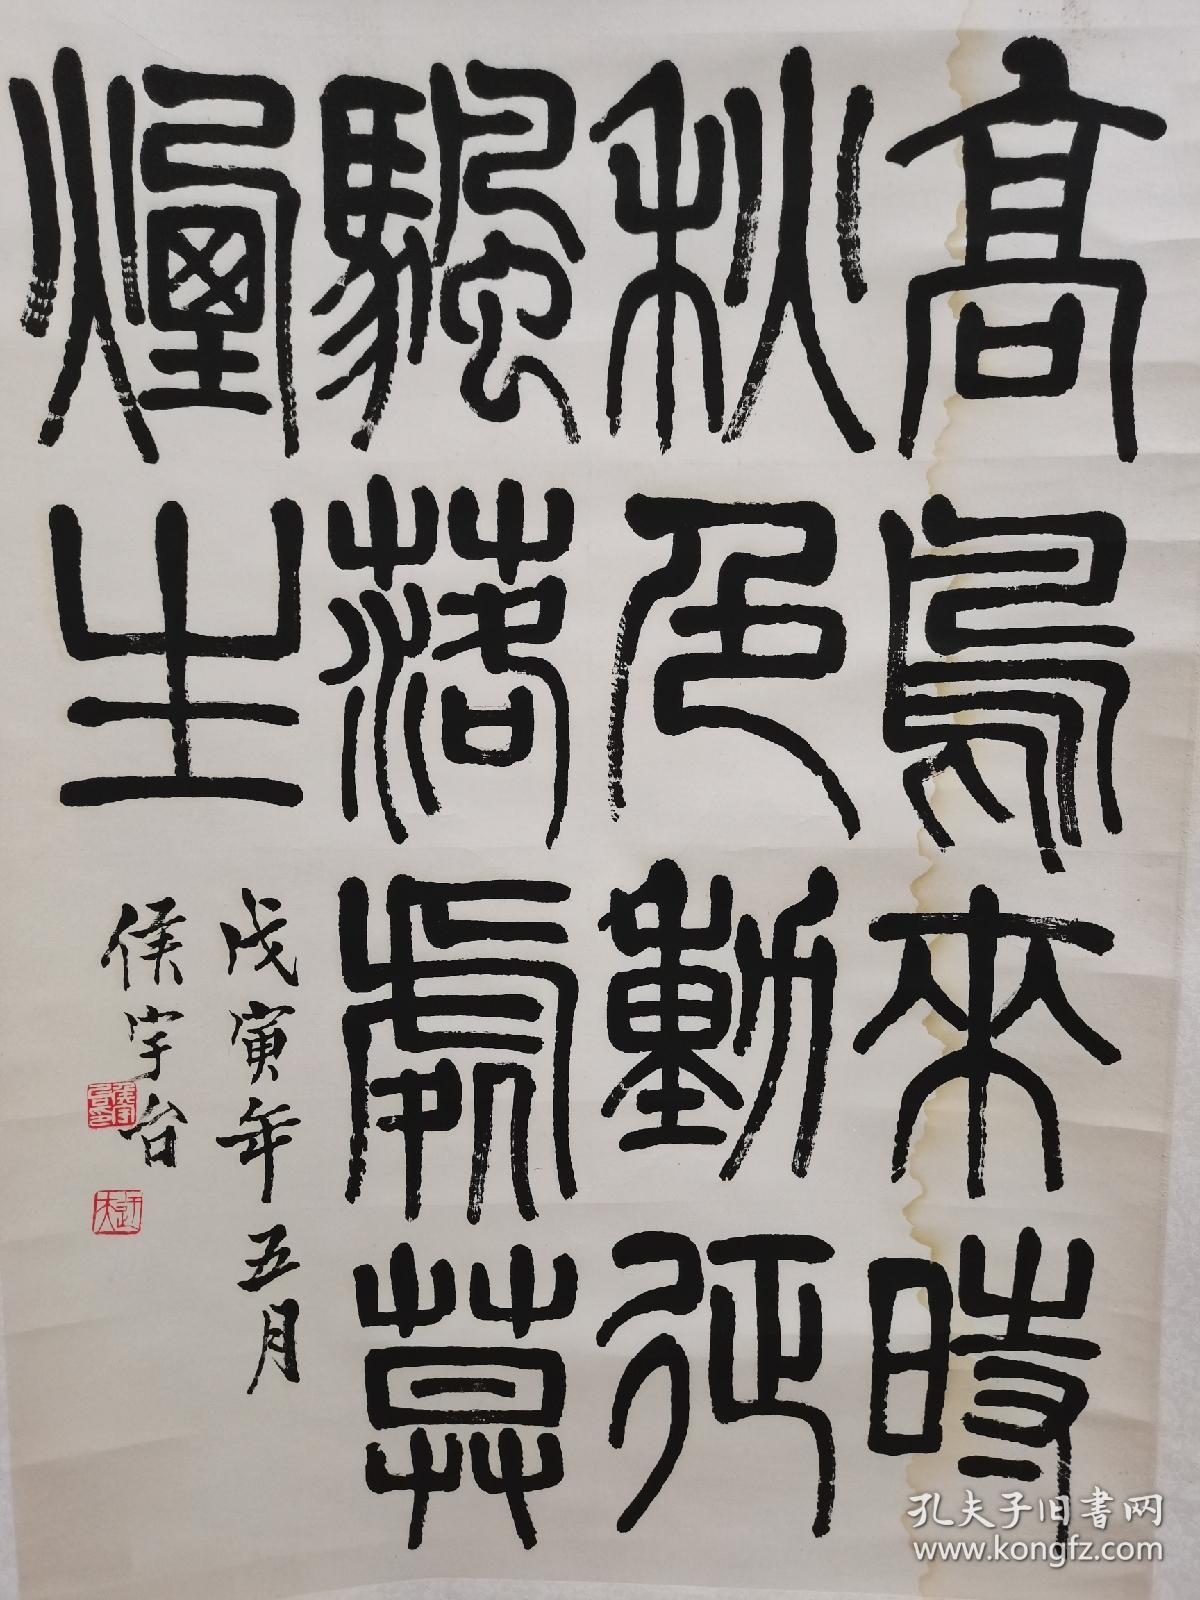 高鳥來時
秋色動征
颿落處莫
煙生
戊寅年五月
侯宇台
孔夫子旧書网
www.kongfz.com